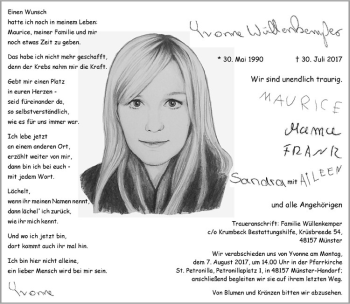 Einen Wunsch
hatte ich noch in meinem Leben:
Maurice, meiner Familie und mir
noch etwas Zeit zu geben.
Das habe ich nicht mehr geschafft,
denn der Krebs nahm mir die Kraft.
Gebt mir einen Platz
in euren Herzen –
seid füreinander da,
so selbstverständlich,
wie es für uns immer war.
Ich lebe jetzt
an einem anderen Ort,
erzählt weiter von mir,
dann bin ich bei euch –
mit jedem Wort.
Lächelt,
wenn ihr meinen Namen nennt,
dann lächel' ich zurück,
wie ihr mich kennt.
Und wo ich jetzt bin,
dort kommt auch ihr mal hin.
Ich bin hier nicht alleine,
ein lieber Mensch wird bei mir sein.
Yvonne
Yvonne Wüllenkemper
* 30. Mai 1990 † 30. Juli 2017
Wir sind unendlich traurig.
MAURICE
Mama
FRANK
Sandra mit AILEEN
und alle Angehörigen
Traueranschrift: Familie Wüllenkemper
c/o Krumbeck Bestattungshilfe, Krüsbreede 54,
48157 Münster
Wir verabschieden uns von Yvonne am Montag,
dem 7. August 2017, um 14.00 Uhr in der Pfarrkirche
St. Petronilla, Petronillaplatz 1, in 48157 Münster-Handorf;
anschließend begleiten wir sie auf ihrem letzten Weg.
Von Blumen und Kränzen bitten wir abzusehen.